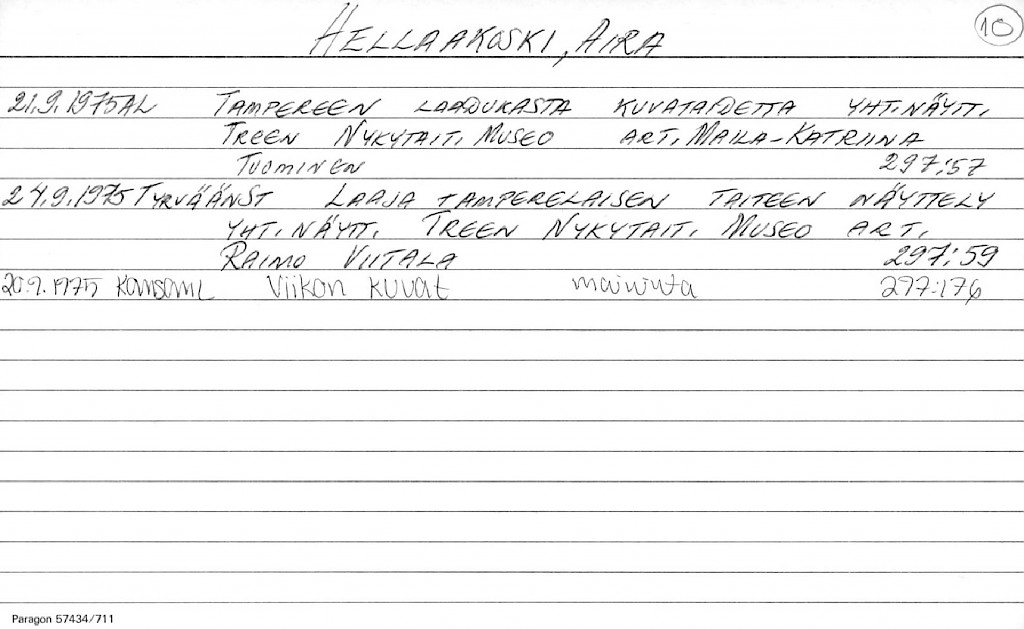 HELLAAKOSKI, AIRA
10
21.9.1975 AL TAMPEREEN LAADUKASTA KUVATAIDETTA YHT.NÄYTT.
TREEN NYKYTAIT. MUSEO ART. MAILA-KATRIINA
TUOMINEN 297:57
24.9.1975 TYRVÄÄNST LAAJA TAMPERELAISEN TAITEEN NÄYTTELY
YHT.NÄYTT. TREEN NYKYTAIT. MUSEO ART.
RAIMO VIITALA 297:59
20.9.1975 KANSANL Viikon kuvat maininta 297:176
Paragon 57434/711